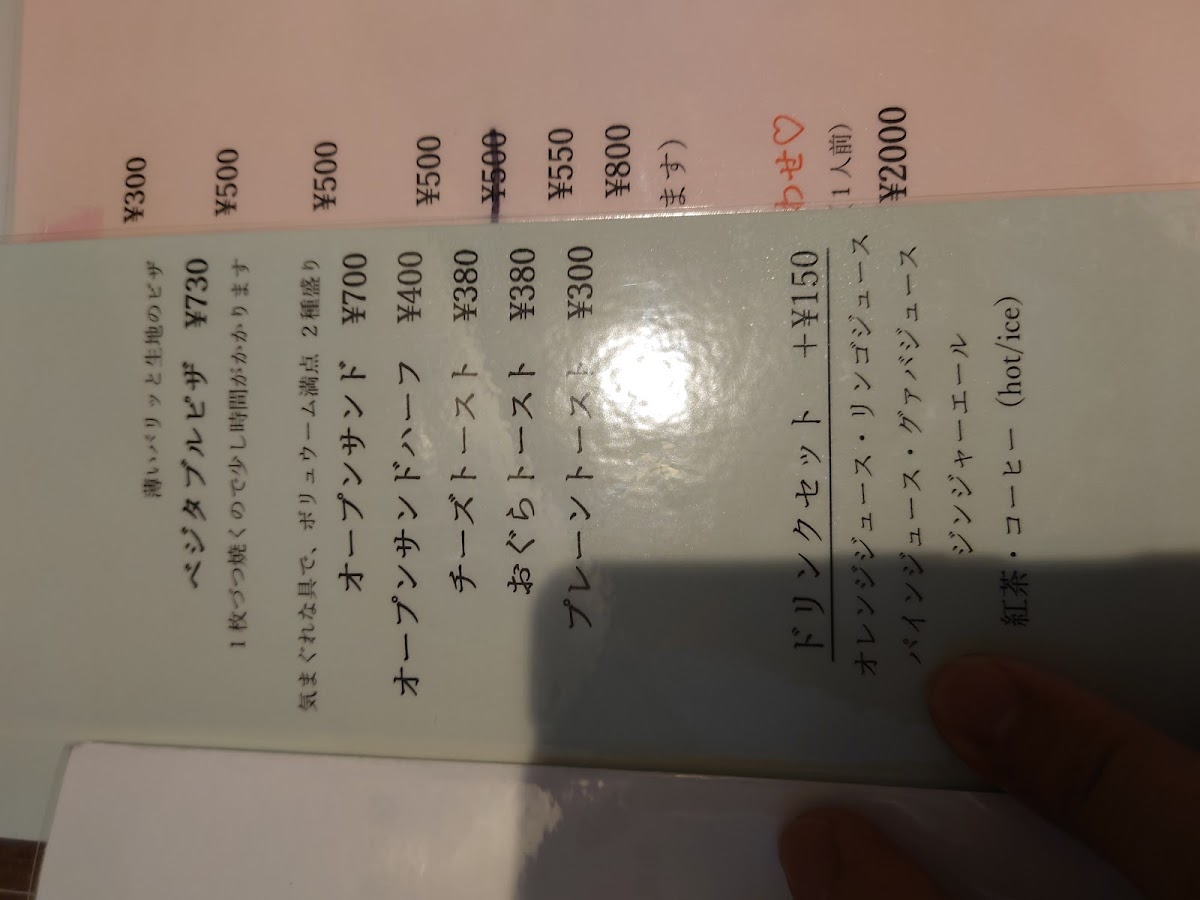 薄いパリッと生地のピザ
ベジタブルピザ ¥730
1枚づつ焼くので少し時間がかかります
気まぐれな具で、ボリュウーム満点 2種盛り
オープンサンド ¥700
オープンサンドハーフ ¥400
チーズトースト ¥380
おぐらトースト ¥380
プレーントースト ¥300
ドリンクセット +¥150
オレンジジュース・リンゴジュース
パインジュース・グァバジュース
ジンジャーエール
紅茶・コーヒー (hot/ice)
¥300
¥500
¥500
¥500
¥500
¥550
¥800
ます)
わせ♡
1人前)
¥2000